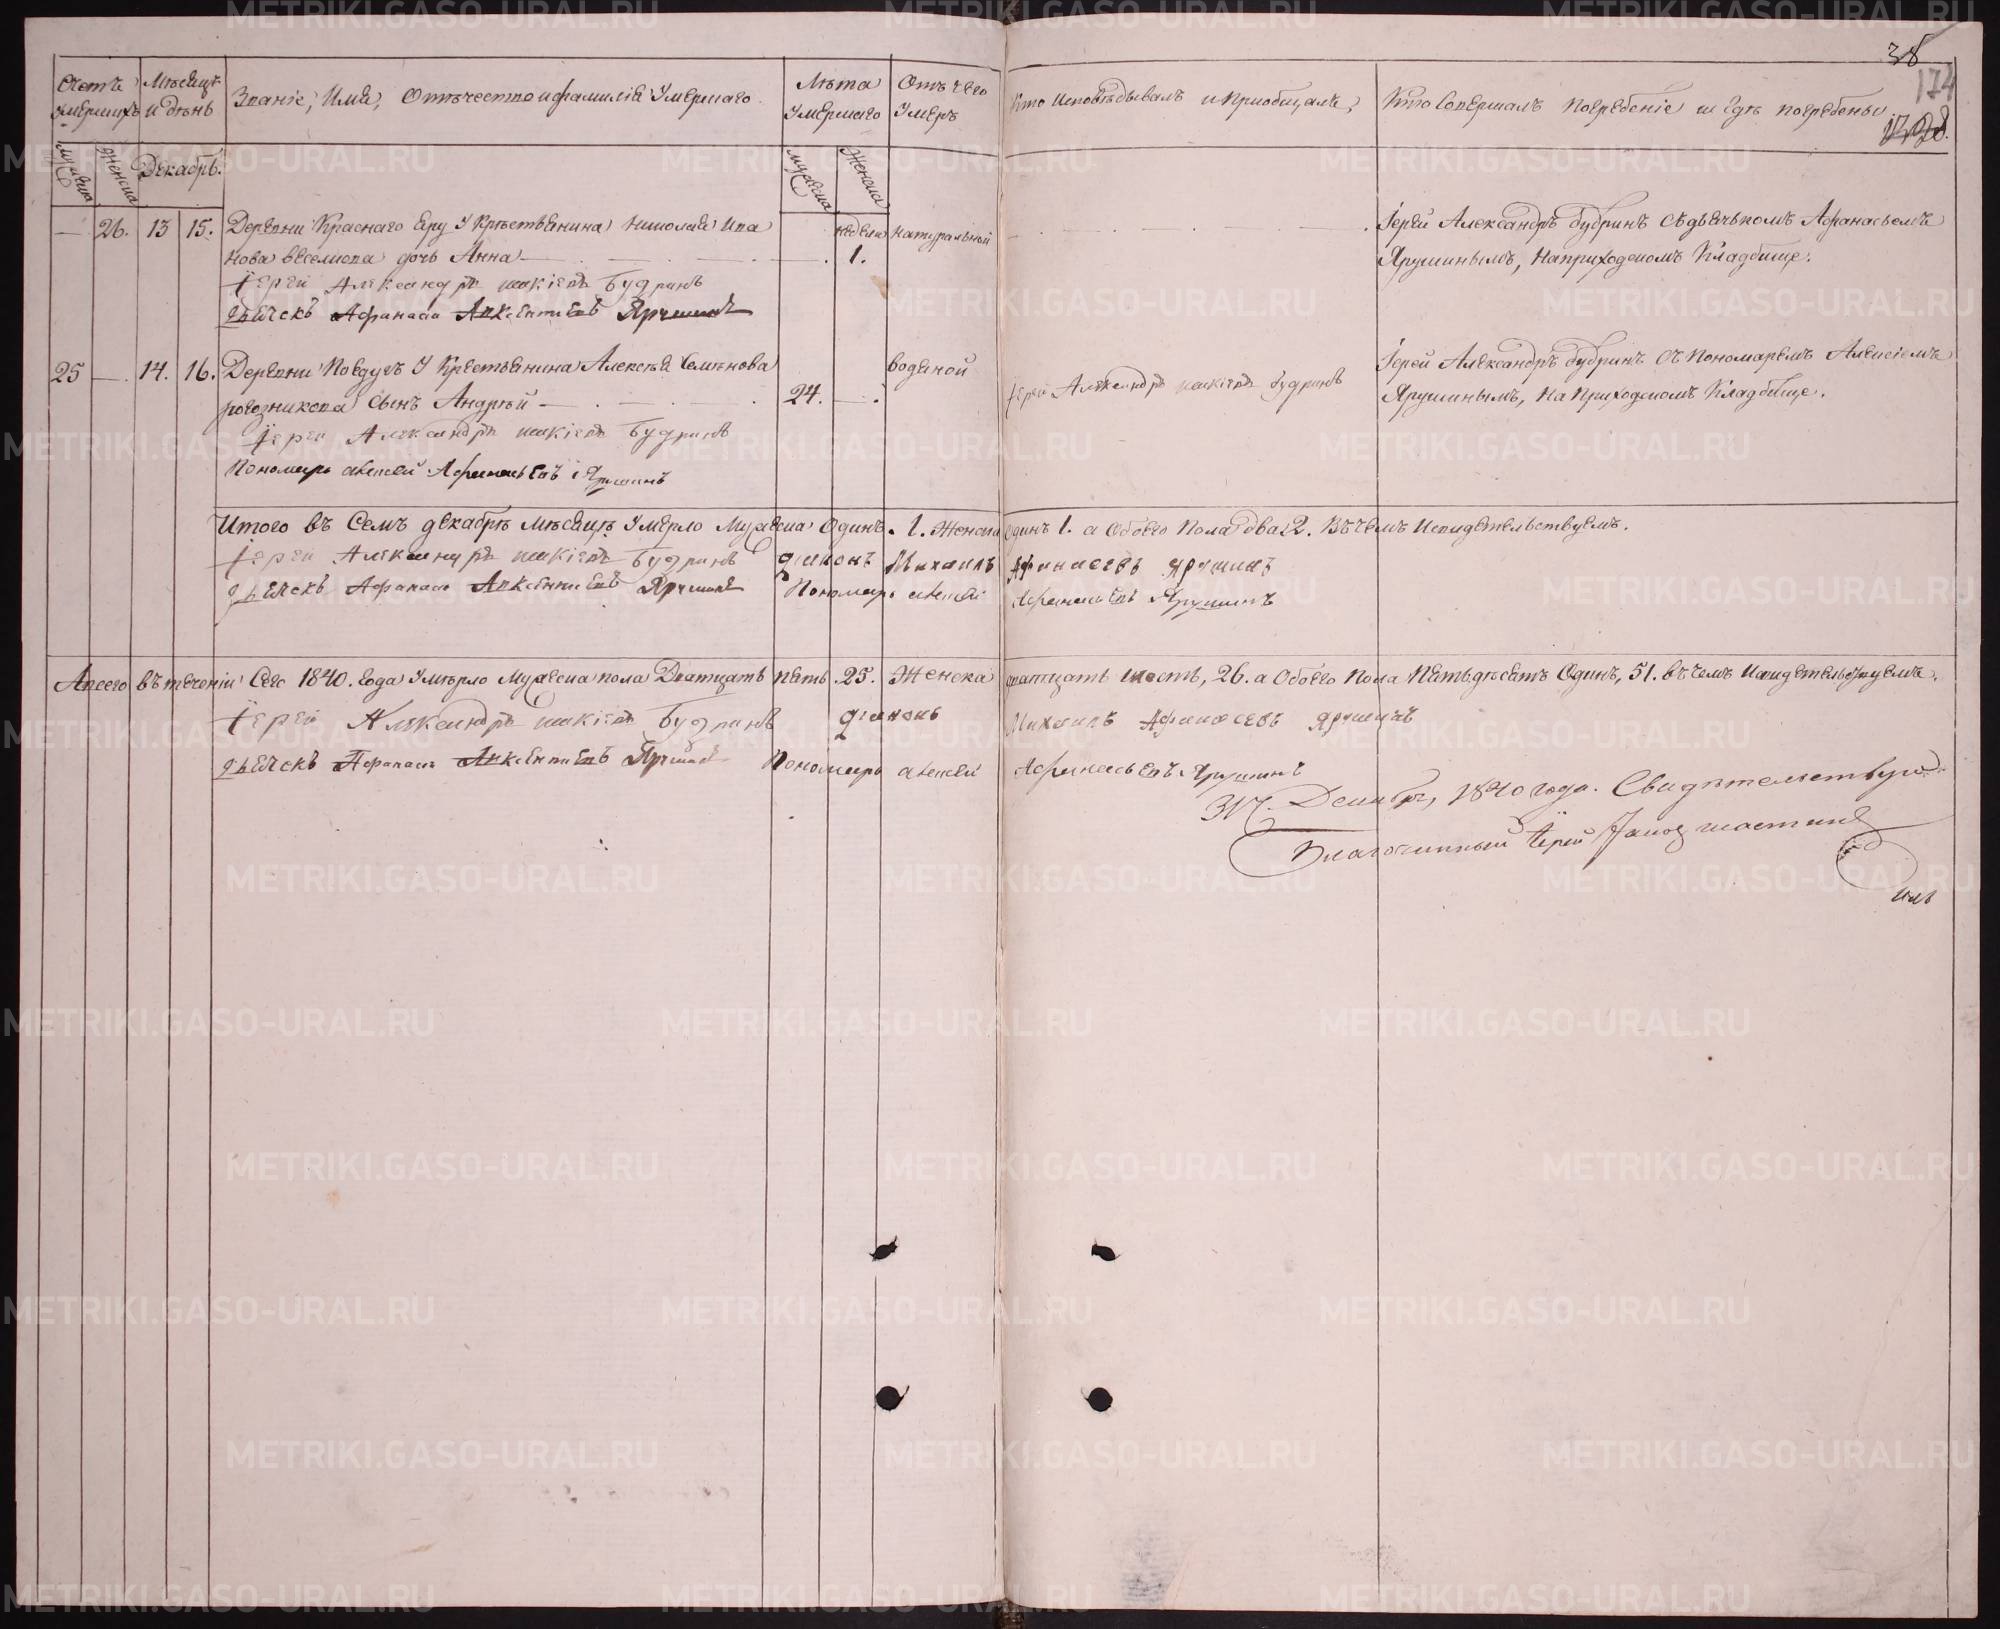 38
174
Счетъ умершихъ
Мѣсяцъ и день
Званіе, Имя, Отечество и фамилія Умершаго
Лѣта Умершаго
Отъ чего Умеръ
Кто Исповѣдывалъ и Приобщалъ,
Кто Совершалъ Погребеніе и гдѣ погребены
Мужеска
Женска
Декабрь.
Мужеска
Женска
— 26. 13 15. Деревни Краснаго Яру У Крестьянина Николая Ива
недели
натуральной
Іерей Александръ Будринъ Съ дьячькомъ Афанасьемъ
нова Веселкова дочь Анна — 1.
Ярушинымъ, на приходскомъ Кладбище.
Іерей Александръ Будринъ
дьячекъ Афанасій Авксентиевъ Ярушинъ
25 — 14. 16. Деревни Поедугъ У Крестьянина Алексѣя Семенова
водяной
Іерей Александръ Будринъ Съ Пономаремъ Алексіемъ
рогозникова Сынъ Андрей — 24. —
Іерей Александръ Будринъ
Ярушинымъ, на Приходскомъ Кладбище.
Іерей Александръ Будринъ
Пономарь Алексей Афанасьевъ Ярушинъ
Итого въ Семъ декабрѣ мѣсяцѣ Умерло Мужеска Одинъ. 1. Женска Одинъ 1. а Обоего Пола два 2. Въ чемъ Исвидетельствуемъ.
Іерей Александръ Будринъ диконъ Михаилъ Афанасевъ Ярушинъ
дьячекъ Афанасій Авксентиевъ Ярушинъ Пономарь Алексей Афанасьевъ Ярушинъ
Авсего въ теченіи Сего 1840. года Умерло Мужеска пола Дватцать пять .25. Женска дватцать шесть, 26. а Обоего Пола Пятьдесятъ Одинъ, 51. въ чемъ Исвидетельствуемъ.
Іерей Александръ Будринъ диконъ Михаилъ Афанасевъ Ярушинъ
дьячекъ Афанасій Авксентиевъ Ярушинъ Пономарь Алексей Афанасьевъ Ярушинъ
Декабря, 1840 года. Свидѣтельствуо
Благочинный Іерей
METRIKI.GASO-URAL.RU